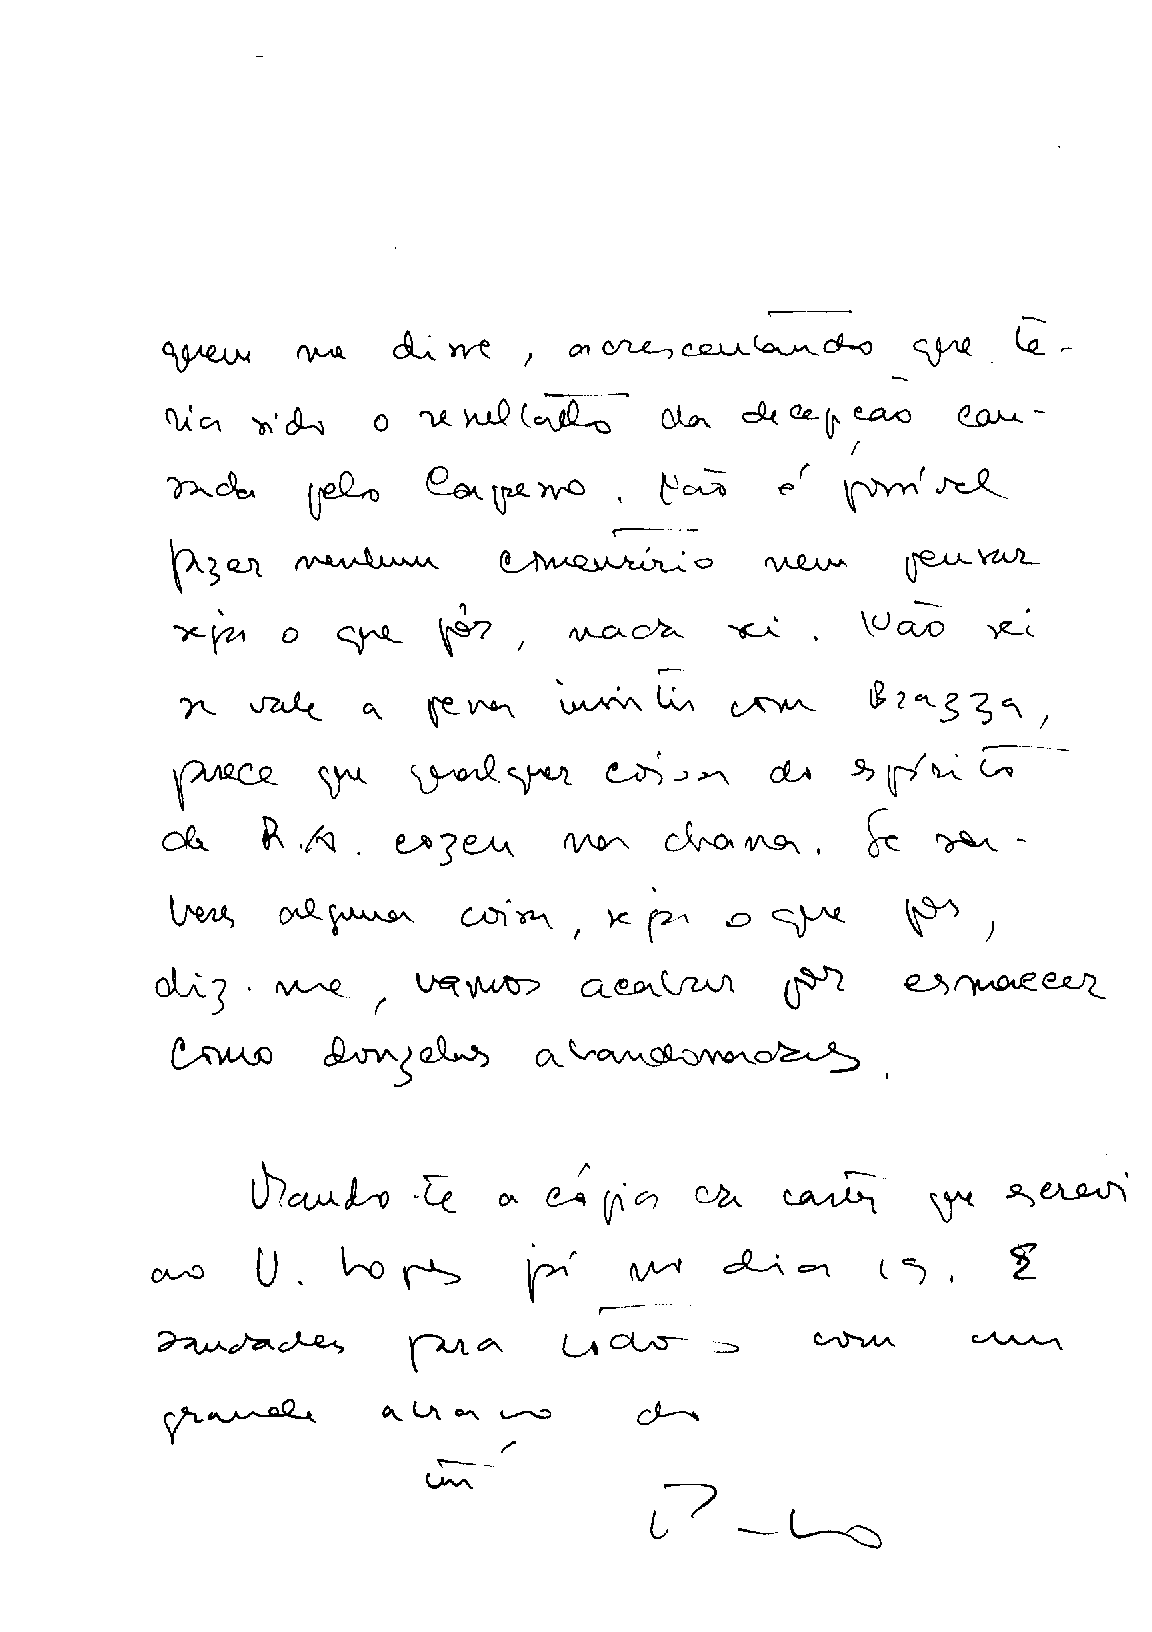 quem me disse, acrescentando que te-
ria sido o resultado da decepção cau-
sada pelo Não é possível
fazer nenhum comentário nem pensar
seja o que fôr, nada sei. Não sei
se vale a pena insistir com Brazza,
parece que qualquer coisa do espírito
de R.A. na chana. Se sou-
beres alguma coisa, seja o que for,
diz-me, vamos acabar por esmaecer
como donzelas abandonadas.
Mando-te a cópia da carta que escrevi
ao U. Lopes já no dia 19. E
saudades para todos com um
grande abraço do